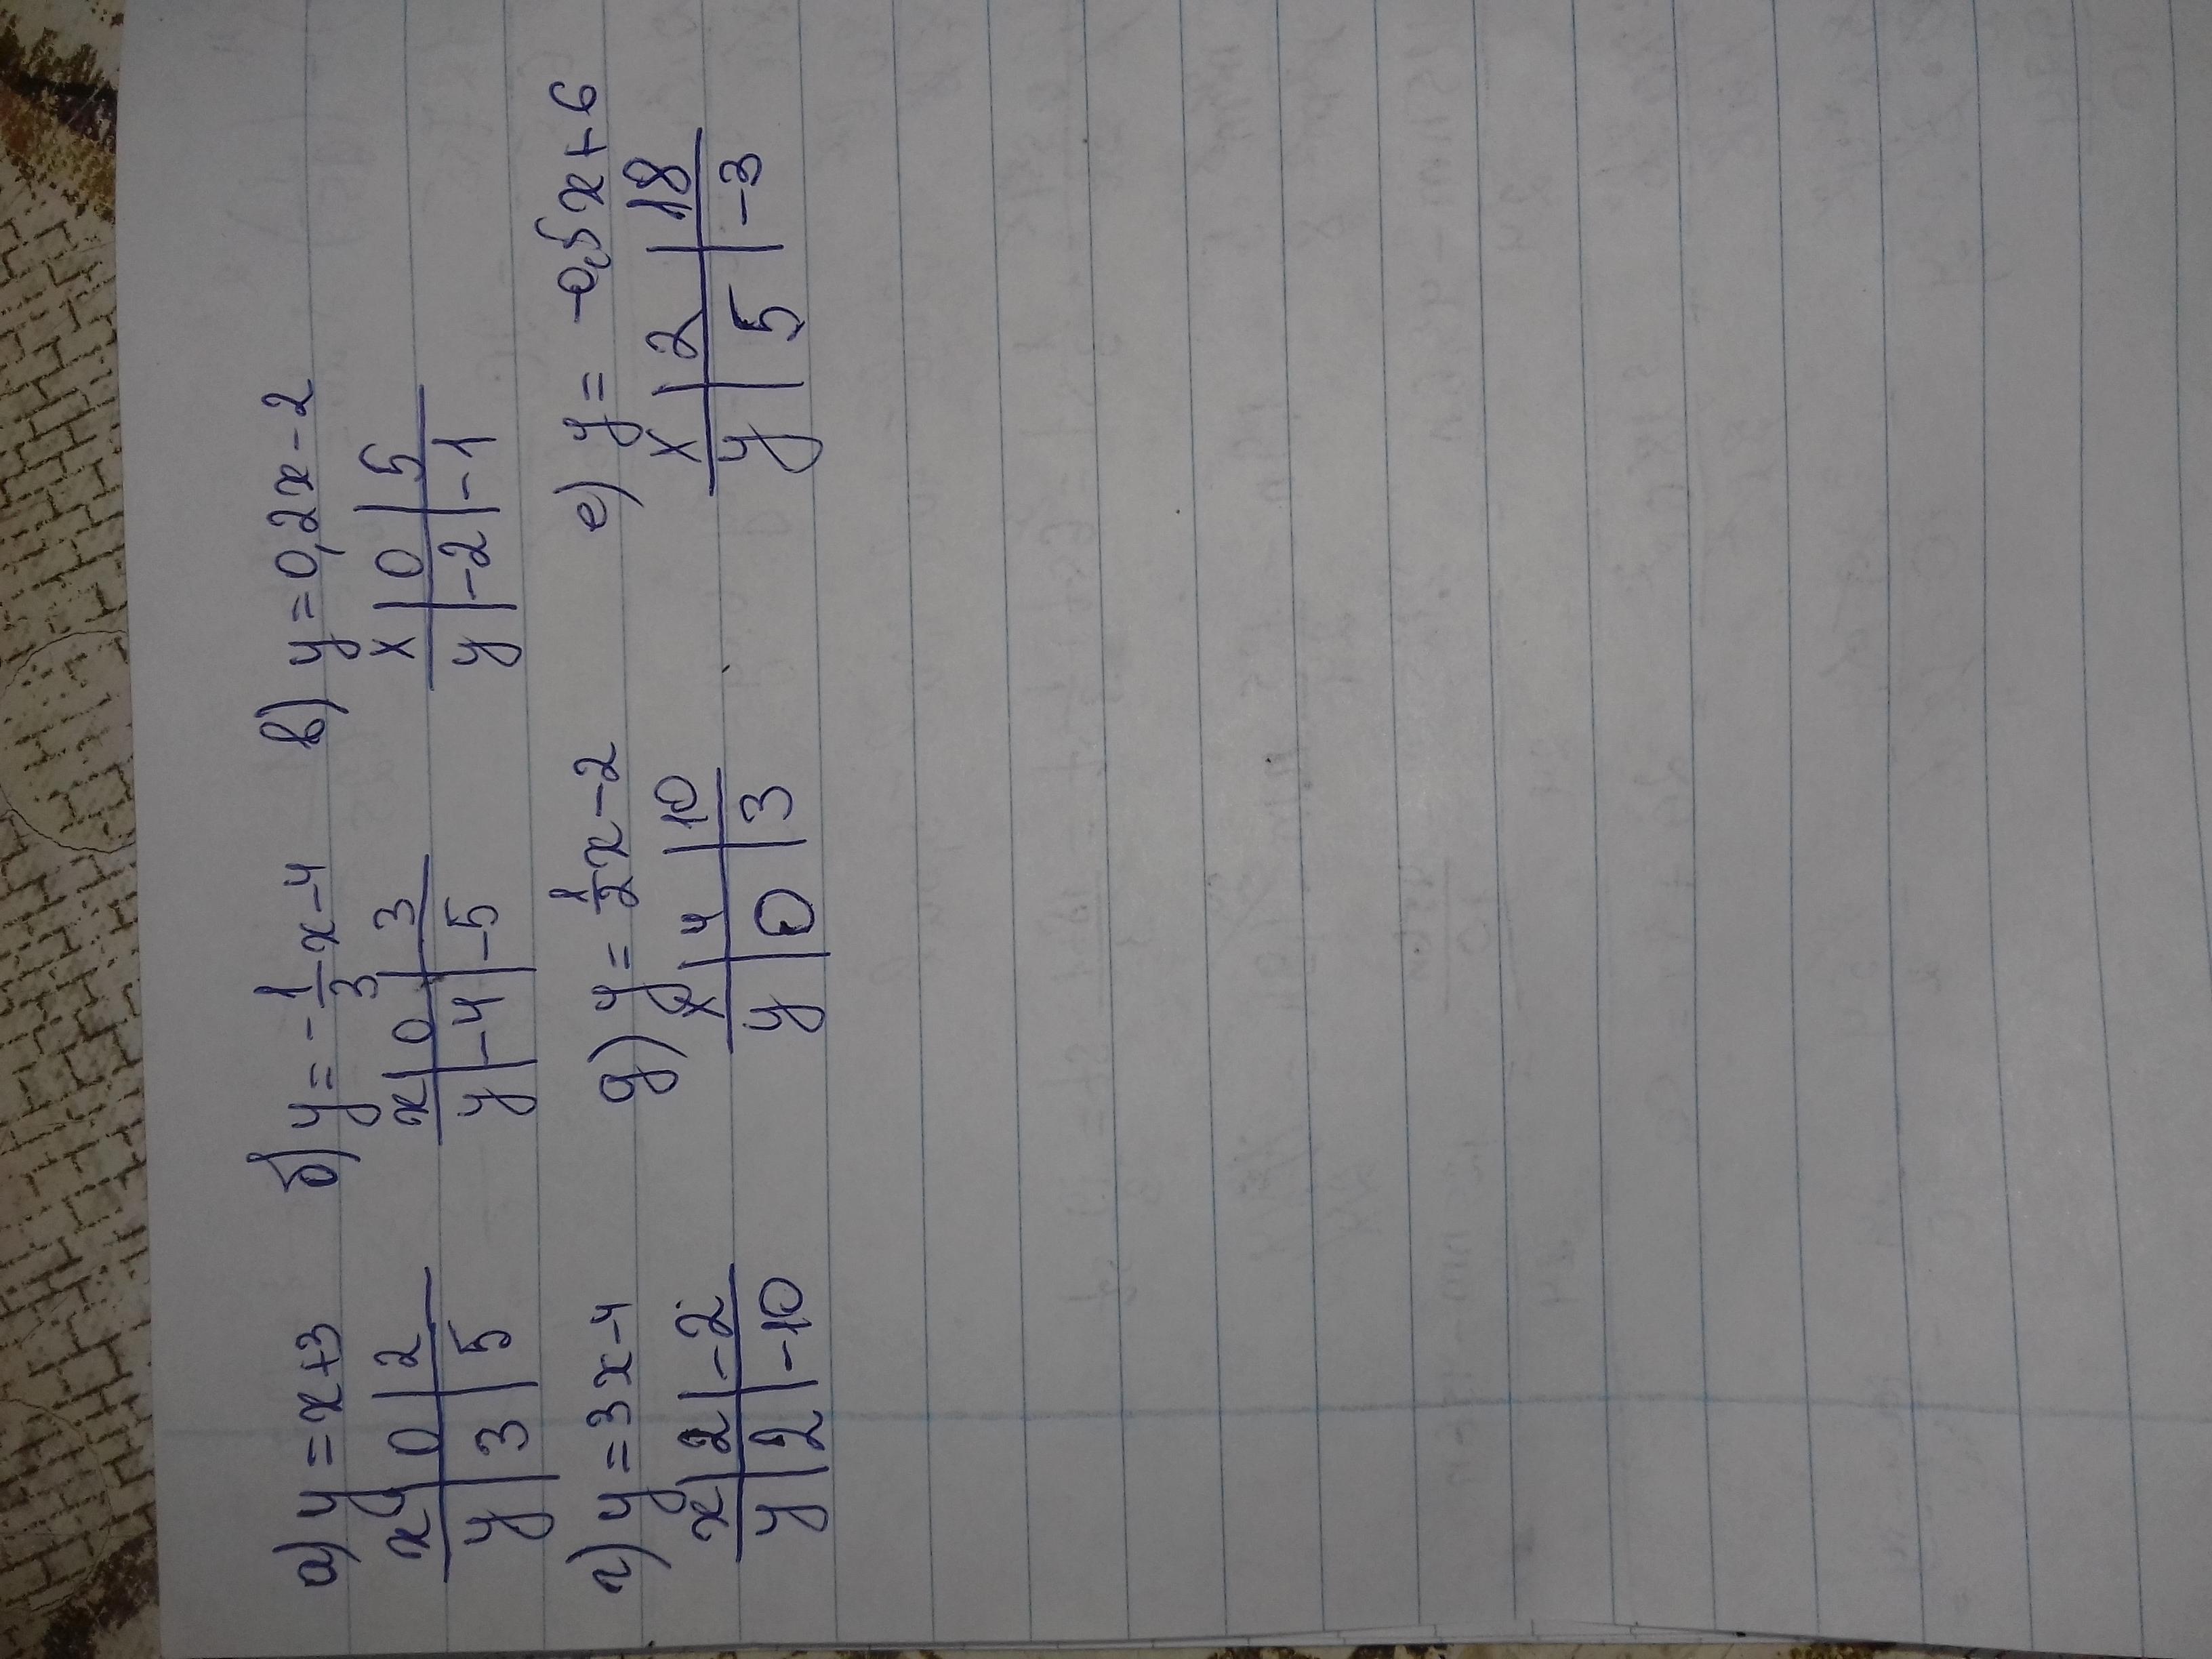 а) y = x+3 б) y = -1/3 x-4 в) y = 0,2x-2
x | 0 | 2 x | 0 | 3 x | 0 | 5
y | 3 | 5 y | -4 | -5 y | -2 | -1
г) y = 3x-4 д) y = 1/2 x-2 е) y = -0,5x+6
x | 2 | -2 x | 4 | 10 x | 2 | 18
y | 2 | -10 y | 0 | 3 y | 5 | -3